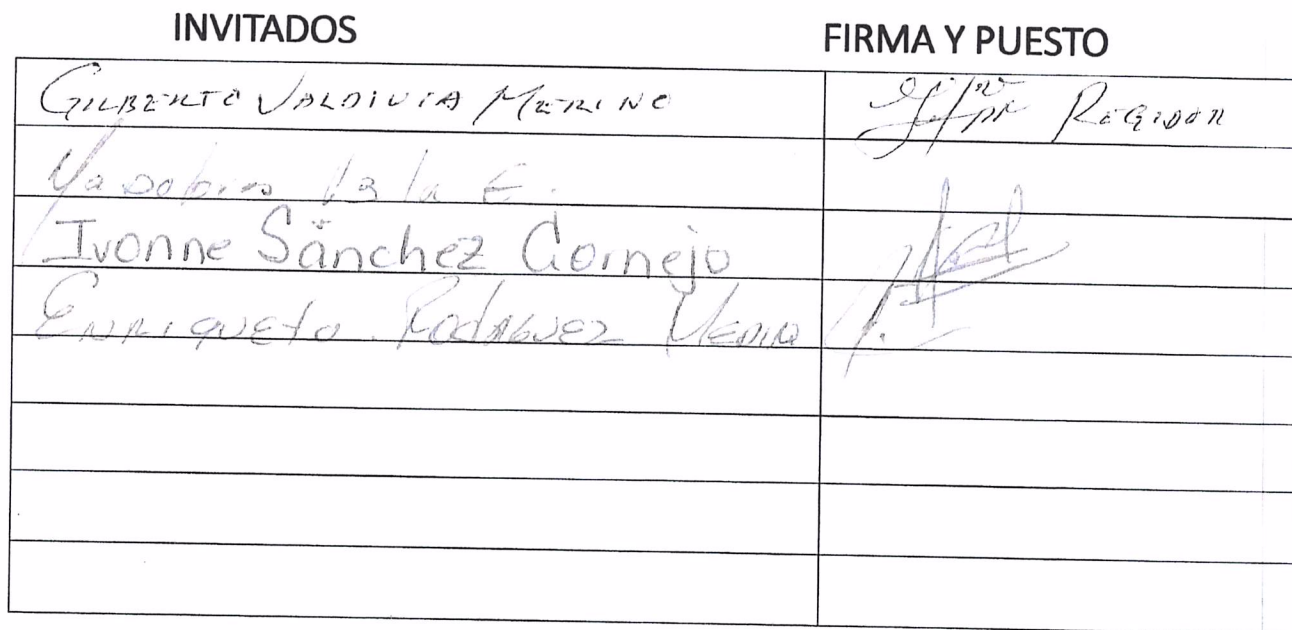 INVITADOS FIRMA Y PUESTO
GILBERTO VALDIVIA MERINO REGIDOR
Ivonne Sánchez Cornejo
ENRIQUETA RODRIGUEZ